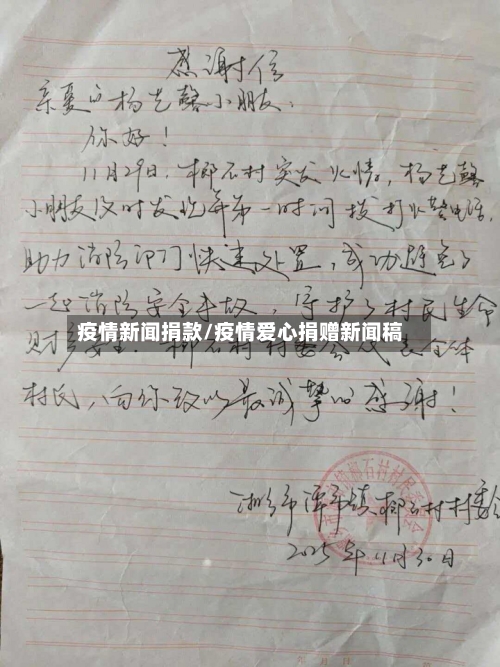 感谢信
亲爱的杨 馨小朋友：
你好！
11月29日，柳石村突发火情，杨 馨
小朋友及时发现并第一时间拨打火警电话，
助力消防部门快速处置，成功避免了
一起消防安全事故，守护了村民生命
疫情新闻捐款/疫情爱心捐赠新闻稿
财产安全. 石村村委会代表全体
村民，向你致以最诚挚的感谢！
石村村
市 镇 石村村委会
2025年11月30日